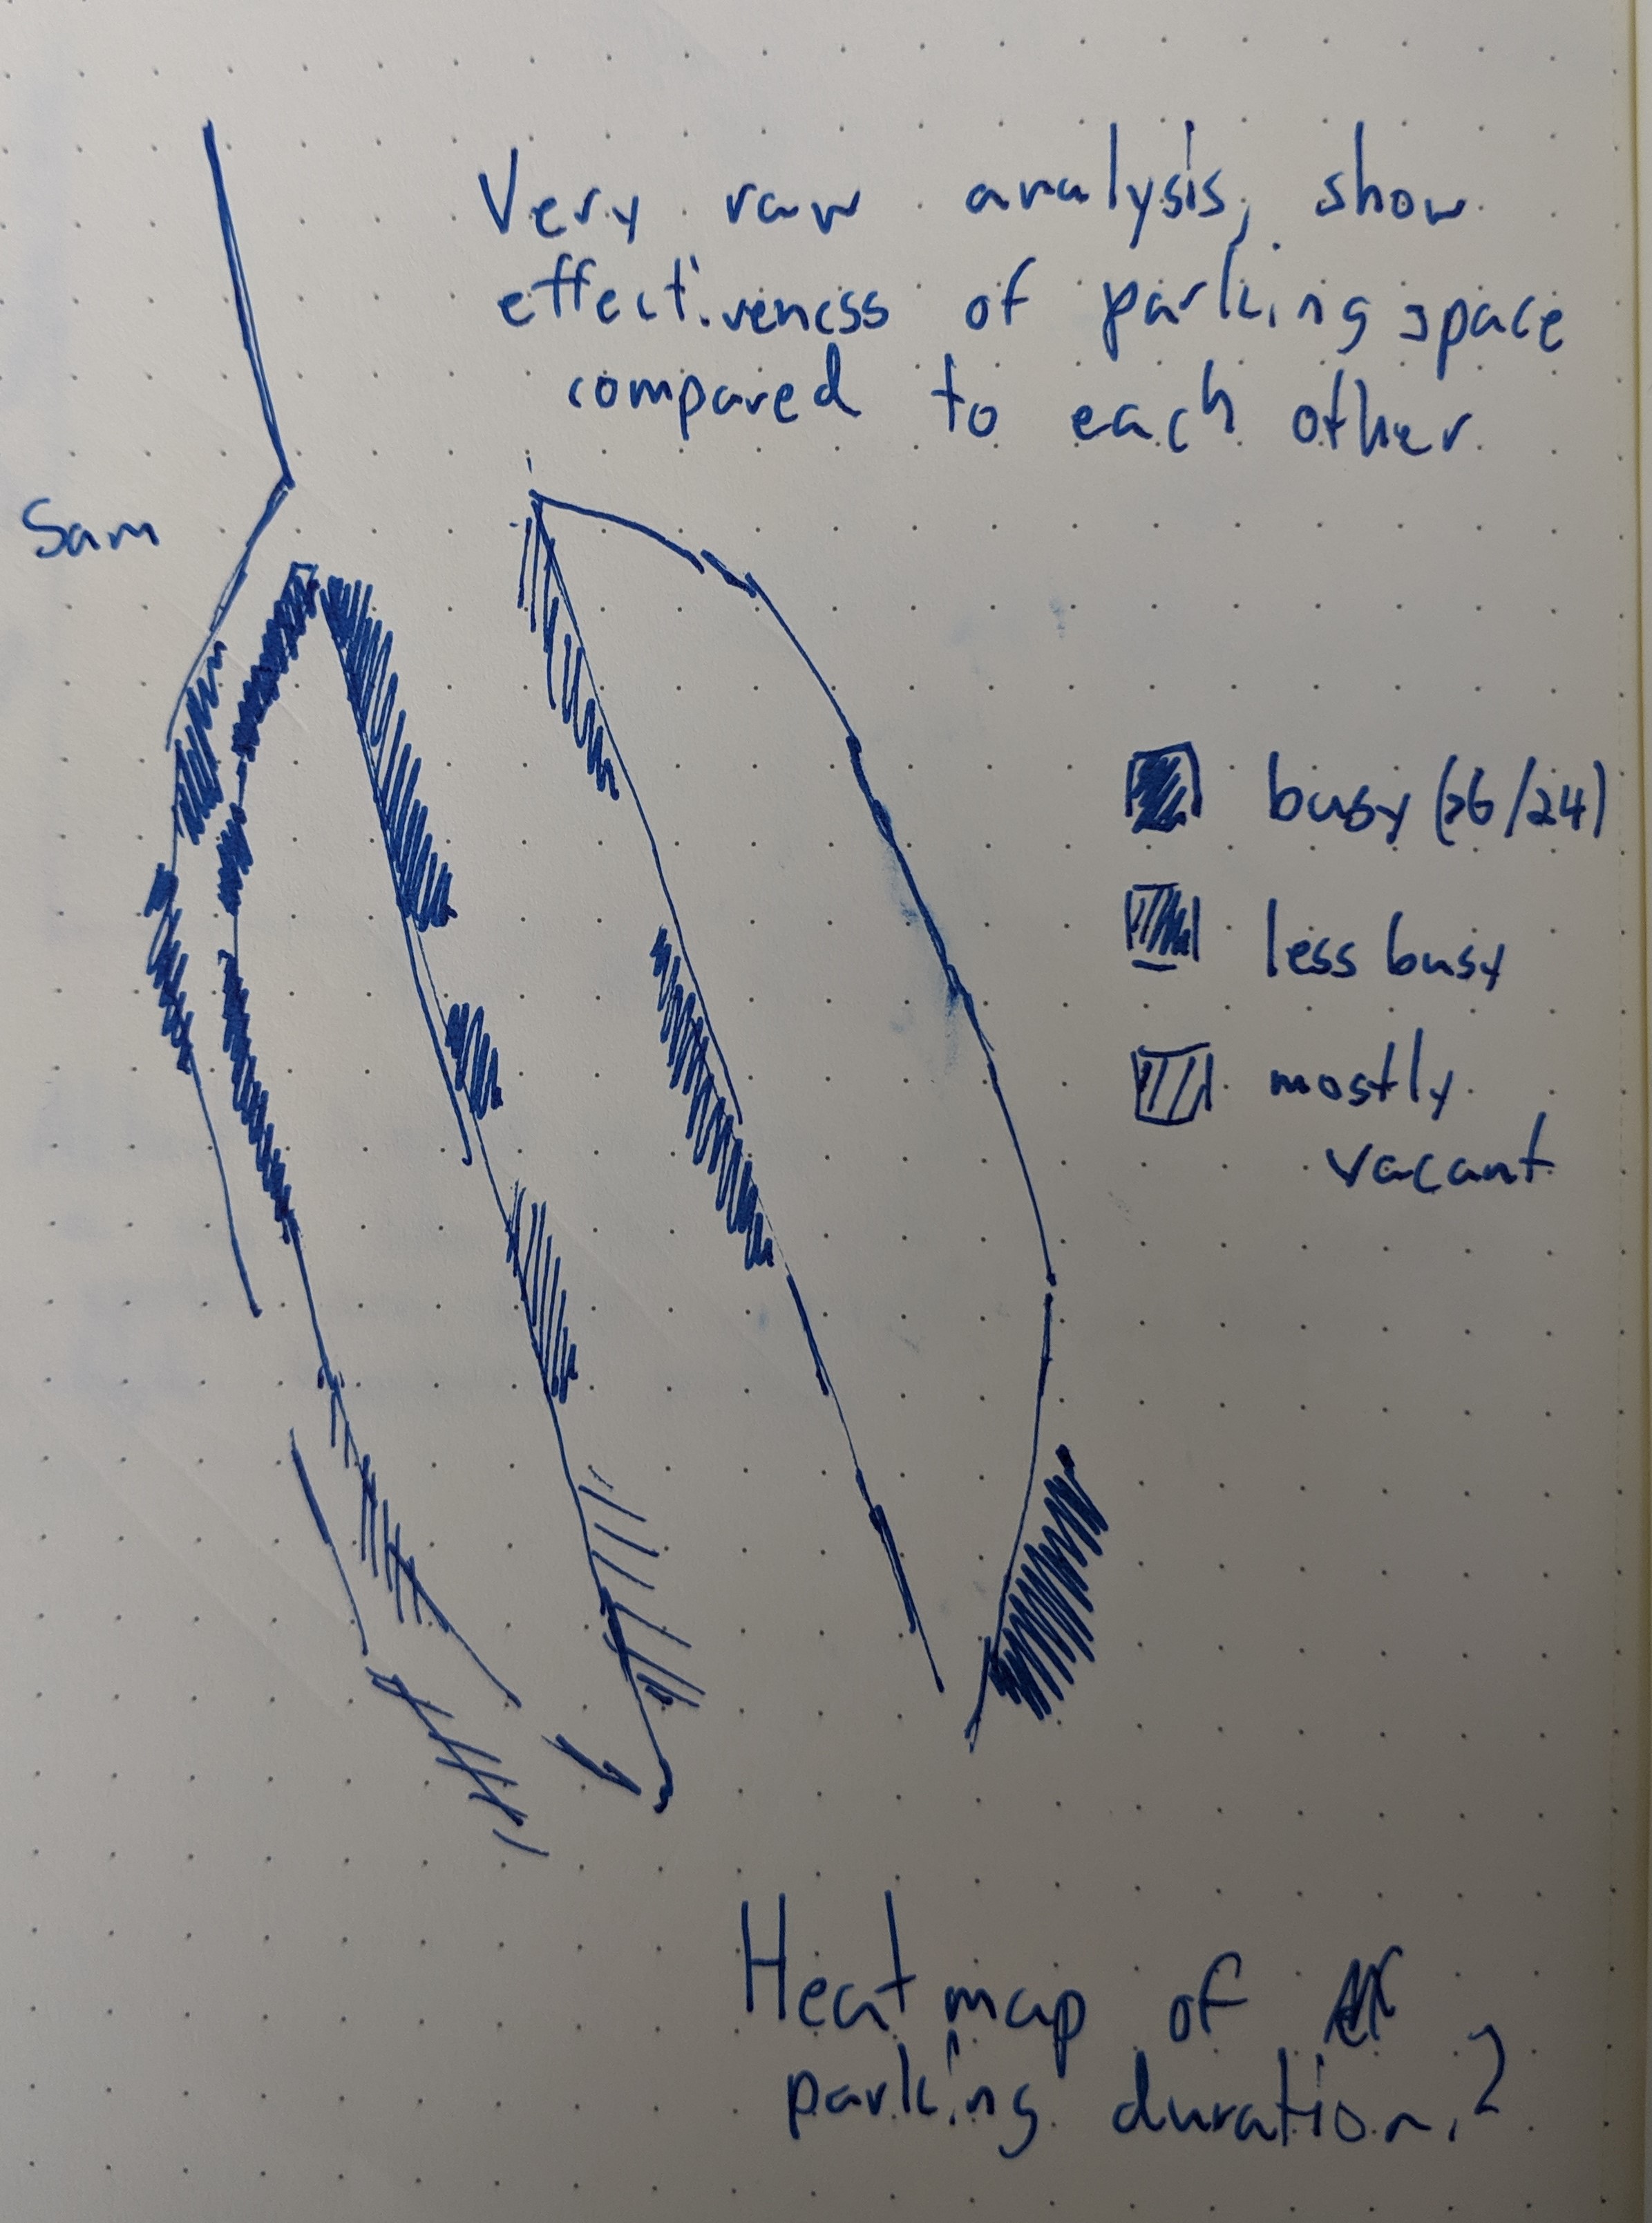 Very raw analysis, show
effectiveness of parking space
compared to each other
Sam
busy (26/24)
less busy
mostly
vacant
Heat map of
parking duration?